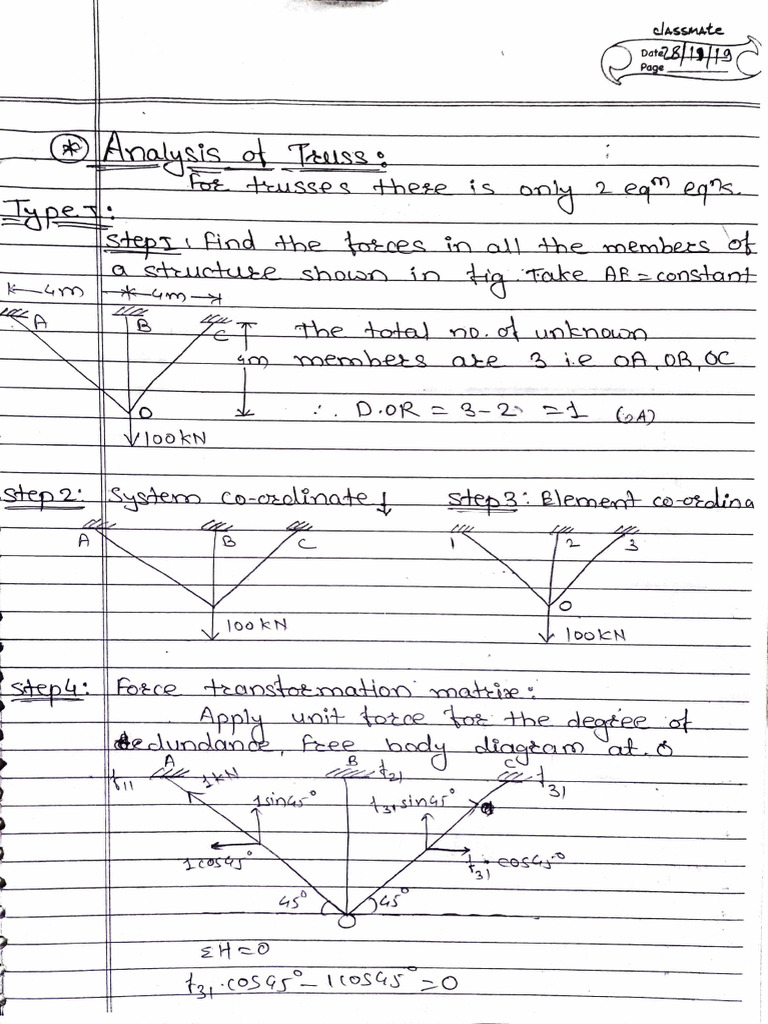 classmate
Date 28/11/19
Page
* Analysis of Truss:
For trusses there is only 2 eqm eqns.
Type I:
Step I: Find the forces in all the members of
a structure shown in fig. Take AE = constant
4m 4m
A B C
The total no. of unknown
4m members are 3 i.e OA, OB, OC
O
∴ D.OR = 3-2 = 1 (OA)
100 KN
Step 2: System co-ordinate ↓ Step 3: Element co-ordina
A B C 1 2 3
O
100 KN 100 KN
Step 4: Force transformation matrix:
Apply unit force for the degree of
redundance, free body diagram at O
f11 A 1KN B f21 C f31
1sin45° f31sin45°
1cos45° f31 cos45°
45° 45°
O
ΣH=0
f31.cos45° - 1cos45° = 0